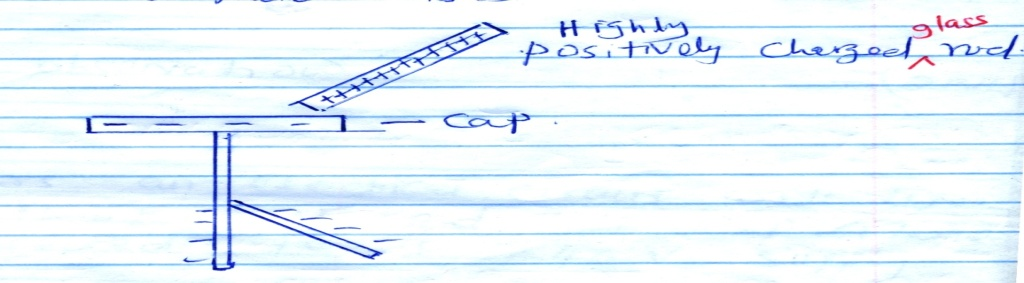 Highly
positively charged glass rod.
— Cap.